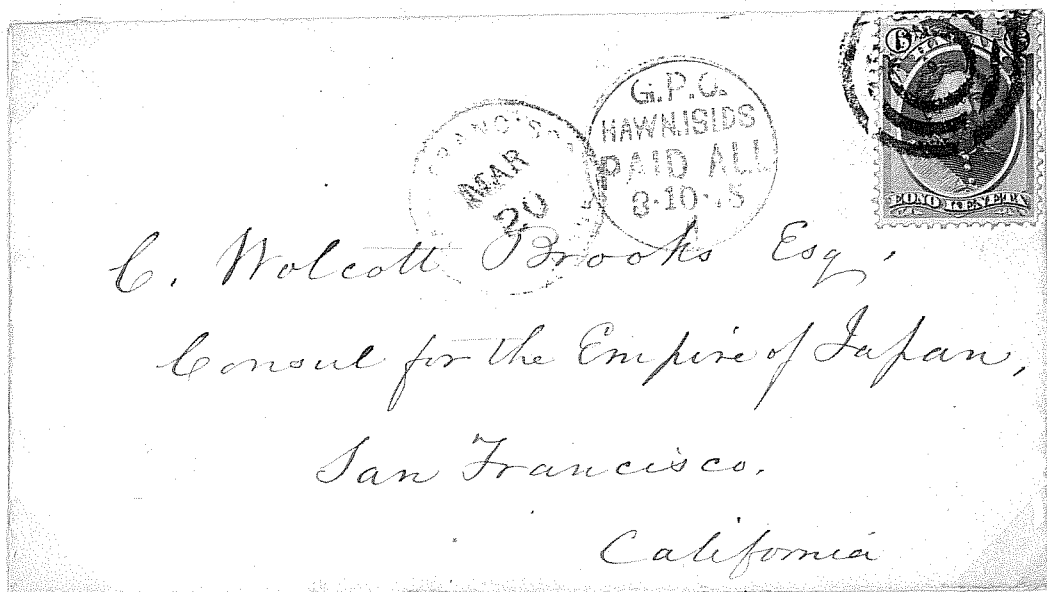 G.P.O.
HAWN.ISLDS
PAID ALL
MAR
20
C. Wolcott Brooks Esq,
Consul for the Empire of Japan,
San Francisco.
California